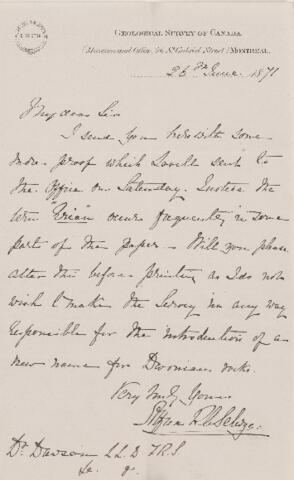 GEOLOGICAL SURVEY OF CANADA.
(Museum and Office, 76, St. Gabriel Street) MONTREAL,
26th June 1871
My dear Sir
I send you herewith some
more proof which Lovell sent to
the Office on Saturday. I notice the
term Erian occurs frequently in some
part of the paper - Will you please
alter this before printing as I do not
wish to make the Survey in any way
responsible for the introduction of a
new name for Devonian rocks.
Very truly Yours
Alfred R C Selwyn.
Dr. Dawson LLD FRS
&c. &c.